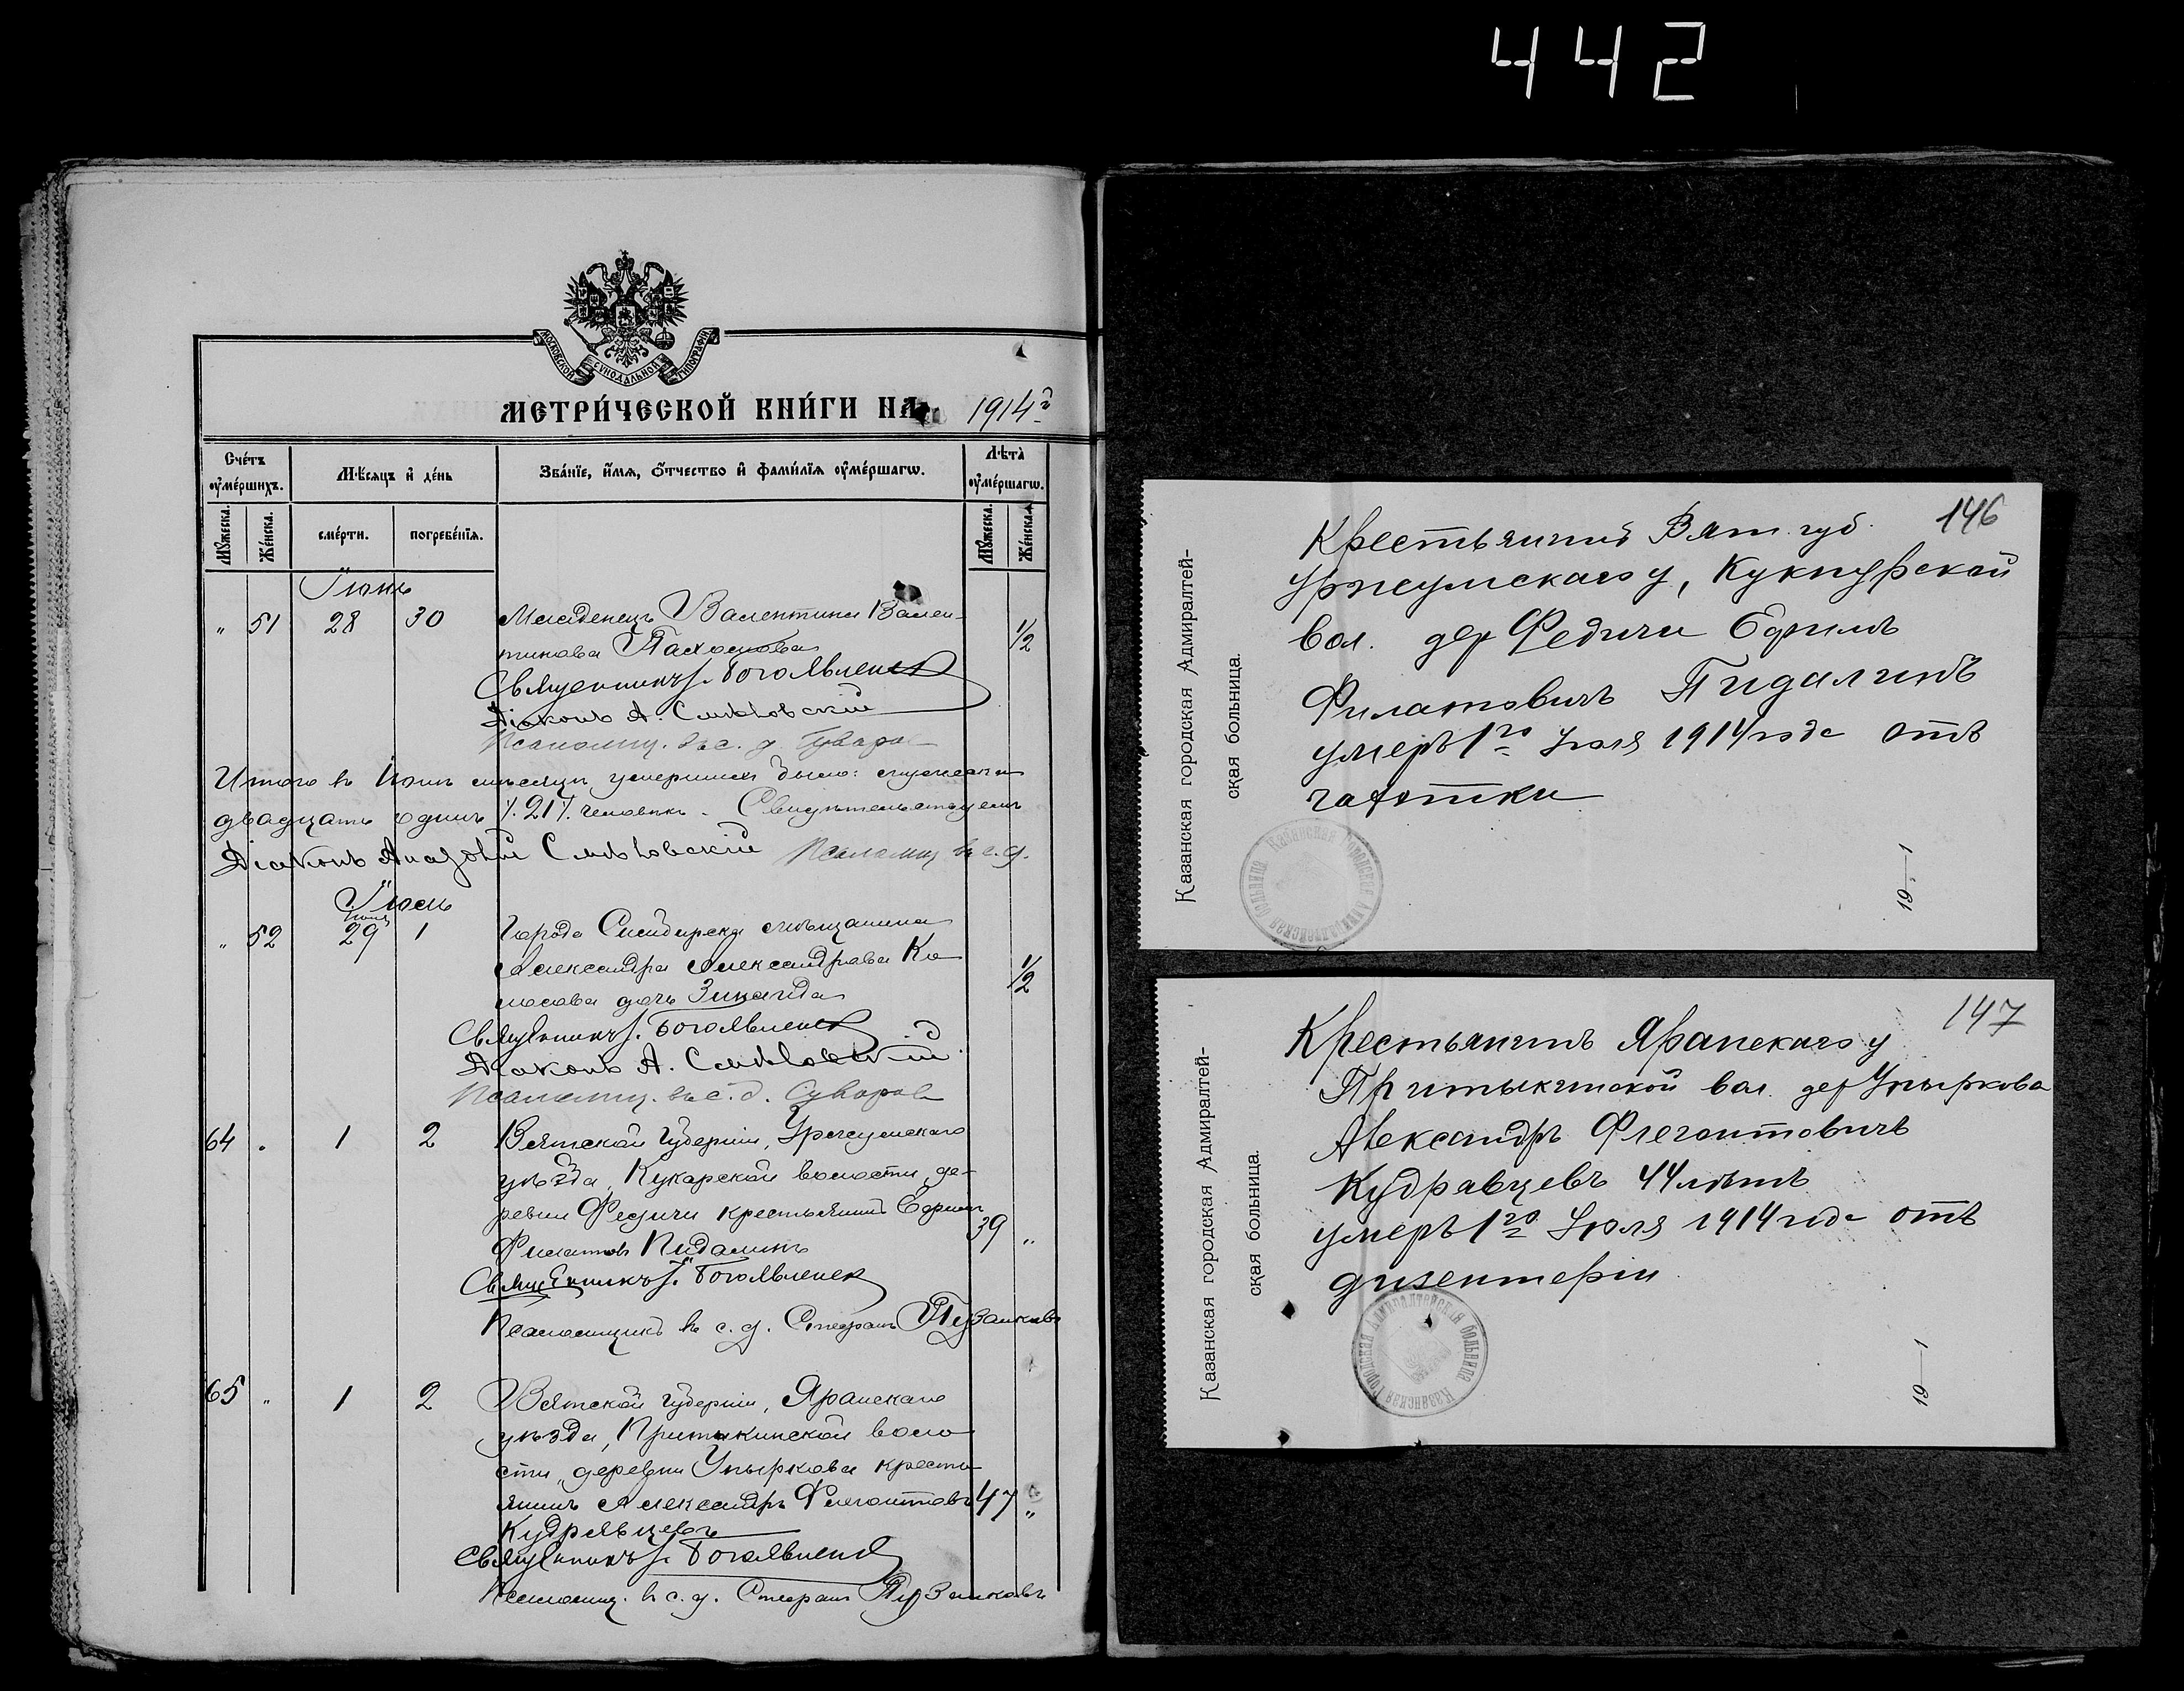 442
МОСКОВСКОЙ СѴНОДАЛЬНОЙ ТИПОГРАФІИ
МЕТРИ́ЧЕСКОЙ КНИ́ГИ НА 1914 г
Сче́тъ ᲂу҆ме́ршихъ.
Мѣ́сяцъ и҆ де́нь
Зва́нїе, и҆́мя, ѻ҆́тчество и҆ фами́лїя ᲂу҆ме́ршагѡ.
Лѣ́та ᲂу҆ме́ршагѡ.
Мꙋ́жеска.
Же́нска.
сме́рти.
погребе́нїя.
Мꙋ́жеска.
Же́нска.
Іюнь
" 51 28 30 Младенецъ Валентина Вален-
тинова 1/2
Священникъ І. Богоявленск
Діаконъ А. Смѣловскій
Псаломщ. въ с. д. Суваров
Итого въ Іюнѣ мѣсяцѣ умершихъ было: мужеска
двадцать одинъ /.21/. человѣкъ. Свидѣтельствуемъ
Діаконъ Анатолій Смѣловскій Псаломщ въ с. д.
Іюль
" 52 Іюня 29 1 Города Симбирска мѣщанина
Александра Александрова Ко
лосова дочь Зинаида 1/2
Священникъ І. Богоявленск
Діаконъ А. Смѣловскій
Псаломщ. въ с. д. Суваров
64 " 1 2 Вятской губерніи, Уржумскаго
уѣзда, Кукарской волости, де-
ревни Федичи крестьянинъ Ефимъ
Филатовъ Пидалинъ 39 "
Священникъ І. Богоявленск
Псаломщикъ въ с. д. Стефанъ Пузанковъ
65 " 1 2 Вятской губерніи, Яранскаго
уѣзда, Притыкинской воло
сти, деревни Упыркова крестья
янинъ Александръ Флегонтовъ 47 "
Кудрявцевъ
Священникъ І. Богоявленск
Псаломщ. въ с. д. Стефанъ Пузанковъ
Казанская городская Адмиралтей-
ская больница.
146
Крестьянинъ Вят. губ.
Уржумскаго у, Кукнурской
вол. дер Федичи Ефимъ
Филатовичъ Пидалинъ
умеръ 1го Июля 1914 года отъ
чахотки
Казанская Городская Адмиралтейская больница
19 — 1
Казанская городская Адмиралтей-
ская больница.
147
Крестьянинъ Яранскаго у
Притыкинской вол. дер Упыркова
Александръ Флегонтовичъ
Кудравцевъ 44 лѣтъ
умеръ 1го Июля 1914 года отъ
дизентеріи
Казанская Городская Адмиралтейская больница
19 — 1